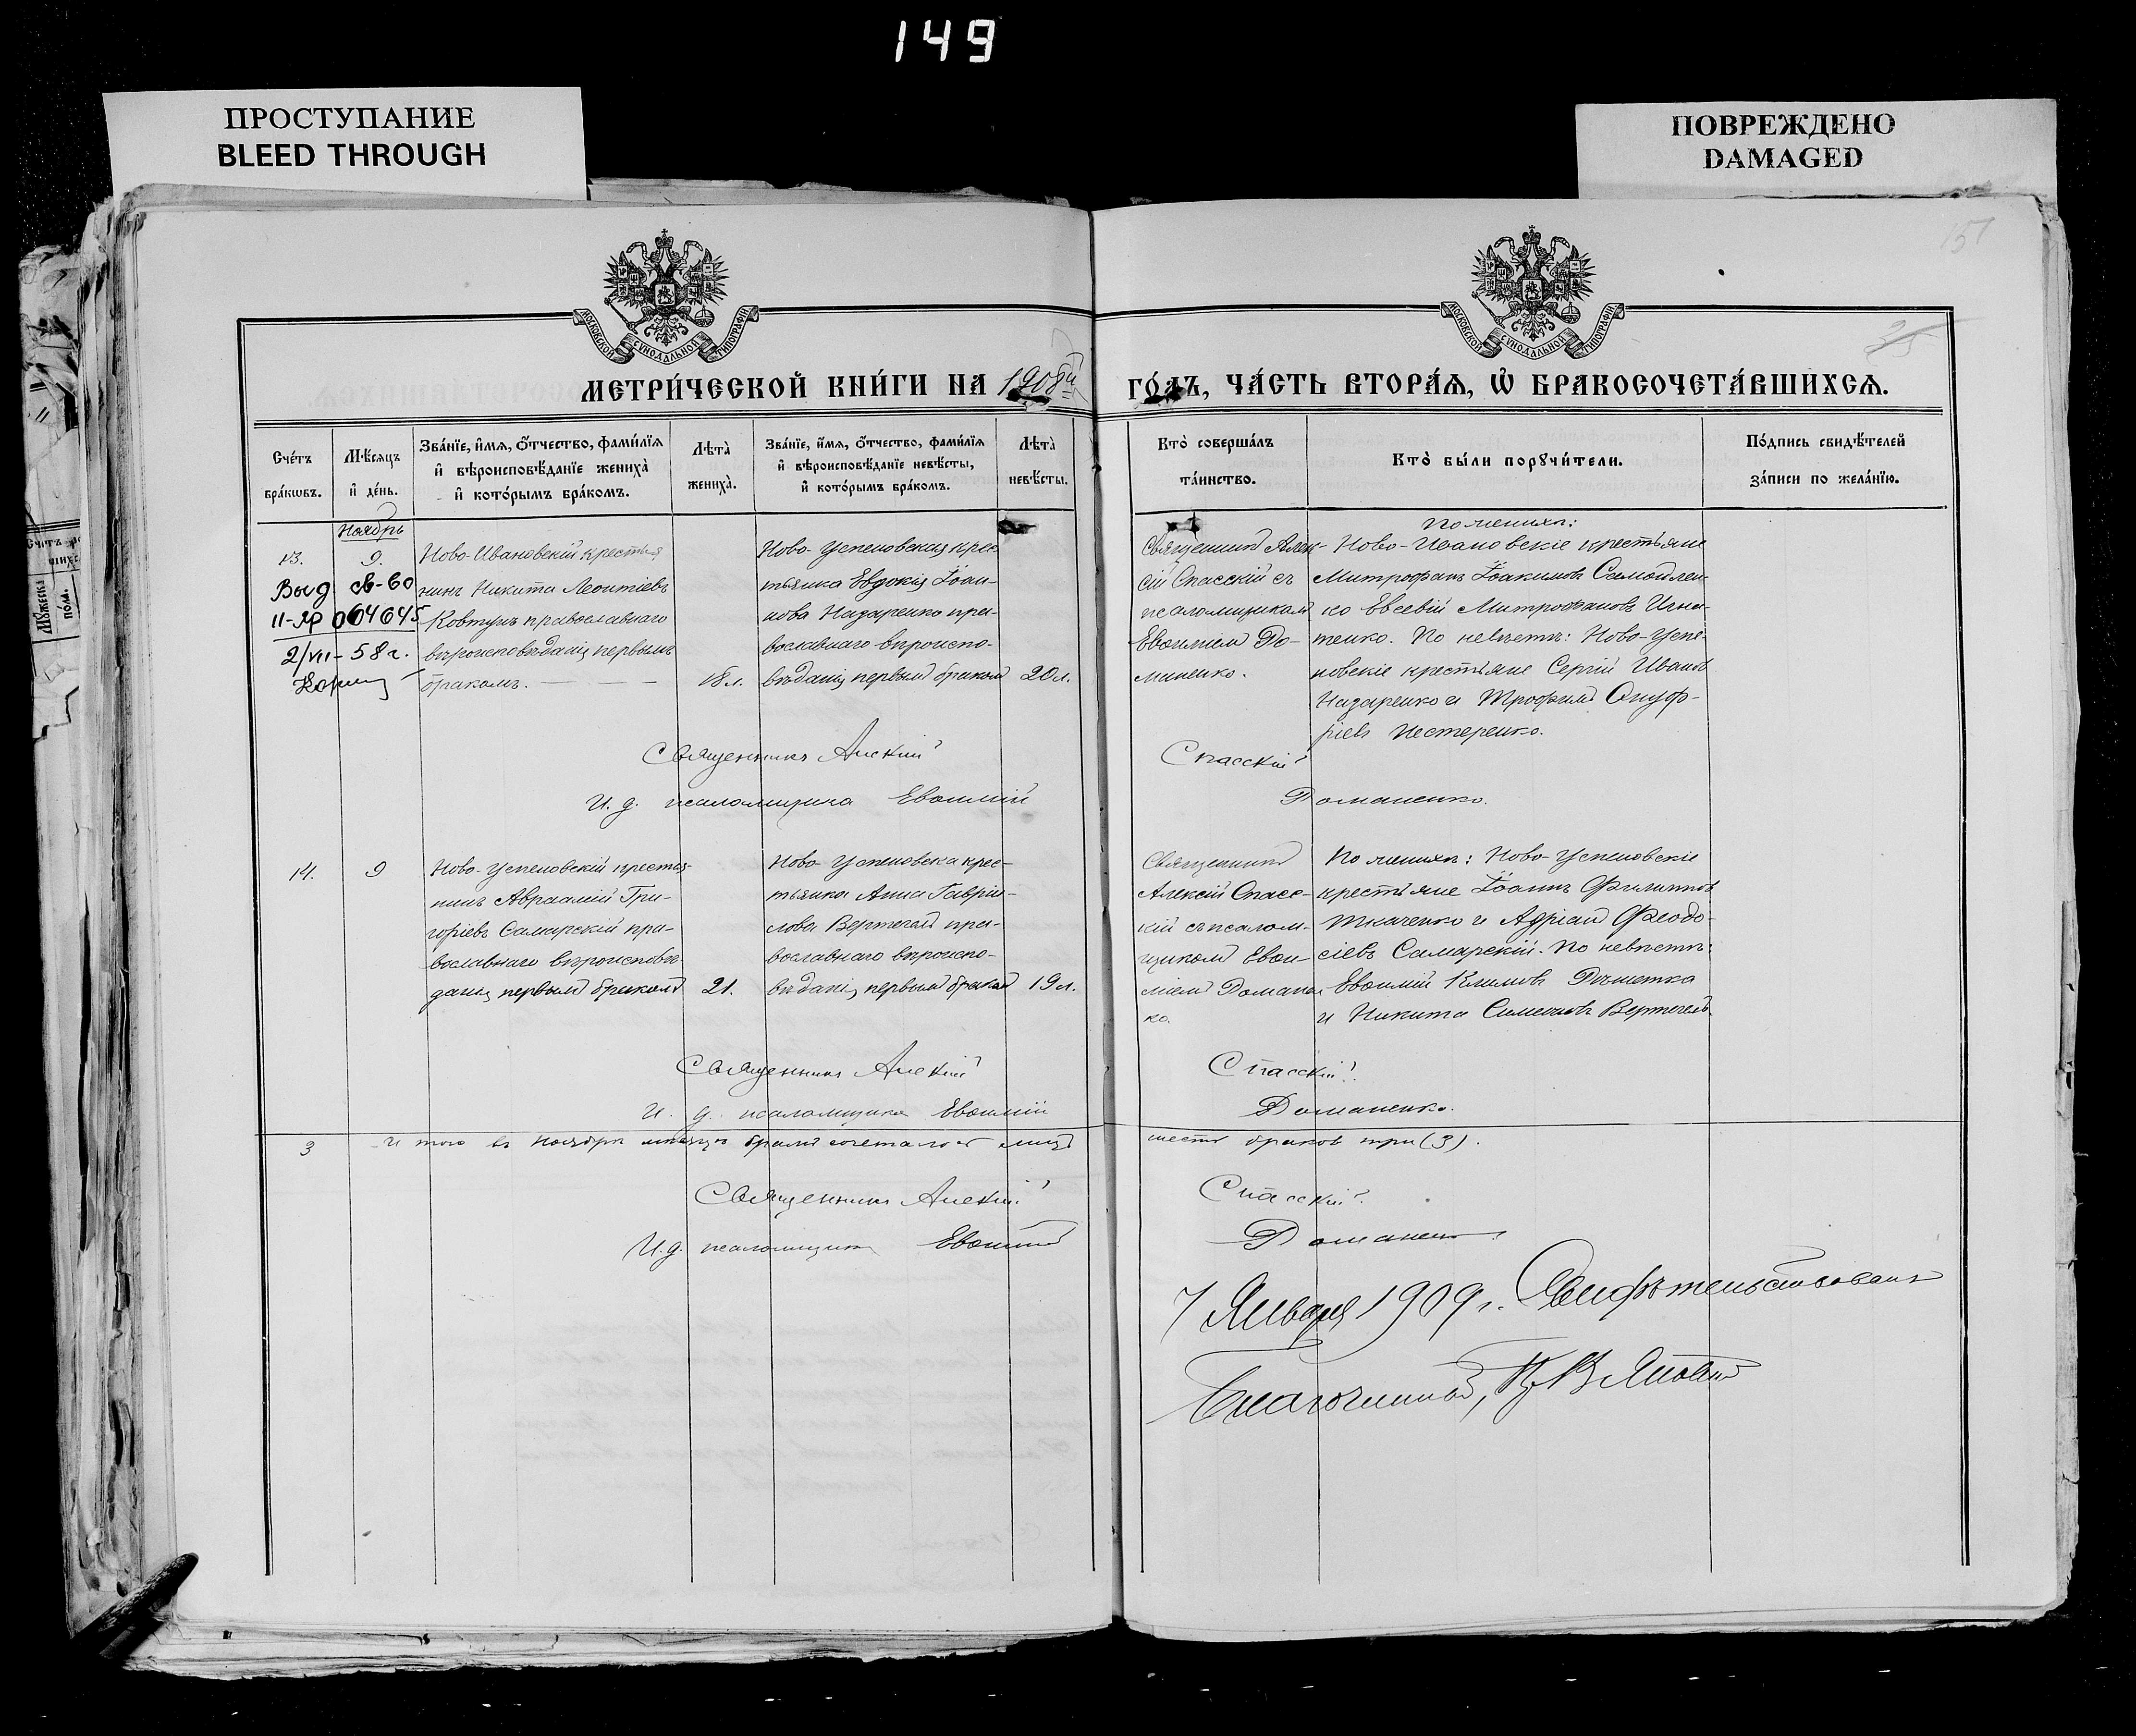 149
ПРОСТУПАНИЕ
BLEED THROUGH
ПОВРЕЖДЕНО
DAMAGED
51
35
МОСКОВСКОЙ СУНОДАЛЬНОЙ ТИПОГРАФІИ
МОСКОВСКОЙ СУНОДАЛЬНОЙ ТИПОГРАФІИ
МЕТРИ́ЧЕСКОЙ КНИ́ГИ НА 1908й
ГО́ДЪ, ЧА́СТЬ ВТОРА́Ѧ, Ѡ҆ БРАКОСОЧЕТА́ВШИХСѦ.
Сче́тъ бра́кѡвъ.
Мѣ́сѧцъ и҆ де́нь.
Зва́нїе, и҆́мѧ, ѻ҆́тчество, фами́лїѧ
и҆ вѣроисповѣ́данїе жениха̀
и҆ кото́рымъ бра́комъ.
Лѣта̀ жениха̀.
Зва́нїе, и҆́мѧ, ѻ҆́тчество, фами́лїѧ
и҆ вѣроисповѣ́данїе невѣ́сты,
и҆ кото́рымъ бра́комъ.
Лѣта̀ невѣ́сты.
Кто̀ соверша́лъ та́инство.
Кто̀ бы́ли порꙋчи́тели.
По́дпись свидѣ́телей за́писи по жела́нїю.
Ноябрь
13.
9.
Выд св-во
II-ЯР 064645
2/VII-58 г.
Ново-Ивановскій крестья
нинъ Никита Леонтіевъ
Ковтунъ православнаго
вѣроисповѣданія первымъ
бракомъ. — — —
18 л.
Ново-Успеновская крес
тьянка Евдокія Іоан-
нова Назаренко пра-
вославнаго вѣроиспо-
вѣданія первым браком
20 л.
Священник Алек-
сій Спасскій съ
псаломщиком
Евѳиміем До-
маненко.
По женихѣ:
Ново-Ивановскіе крестьяне
Митрофанъ Іоакимовъ Самойлен-
ко Евсевій Митрофановъ Игна-
тенко. По невѣстѣ: Ново-Успе-
новскіе крестьяне Сергій Иванов
Назаренко и Трофим Онуф-
ріевъ Нестеренко.
Священникъ Алексій Спасскій
И. д. псаломщика Евѳимій Доманенко.
14.
9
Ново-Успеновскій крестья-
нинъ Авраамій Гри-
горіевъ Самарскій пра-
вославнаго вѣроисповѣ-
данія первым браком
21.
Ново-Успеновска крес-
тьянка Анна Гаврии-
лова Вертегел пра-
вославнаго вѣроиспо-
вѣданія первым браком
19 л.
Священник
Алексій Спасс-
кій съ псалом-
щиком Евѳи-
міем Доманен
ко.
По женихѣ: Ново-Успеновскіе
крестьяне Іоаннъ Филиппов
Ткаченко и Адріан Феодо-
сіевъ Самарскій. По невѣстѣ:
Евѳимій Климовъ
и Никита Симеоновъ Вертегелъ.
Священникъ Алексій Спасскій.
И. д. псаломщика Евѳимій Доманенко.
3
И того въ ноябрѣ мѣсяцѣ браком сочеталось лицъ шесть браков три (3).
Священникъ Алексій Спасскій.
И. д. псаломщика Евѳимій Доманенко
7 Января 1909 г. Свидѣтельствовалъ
Благочинный,